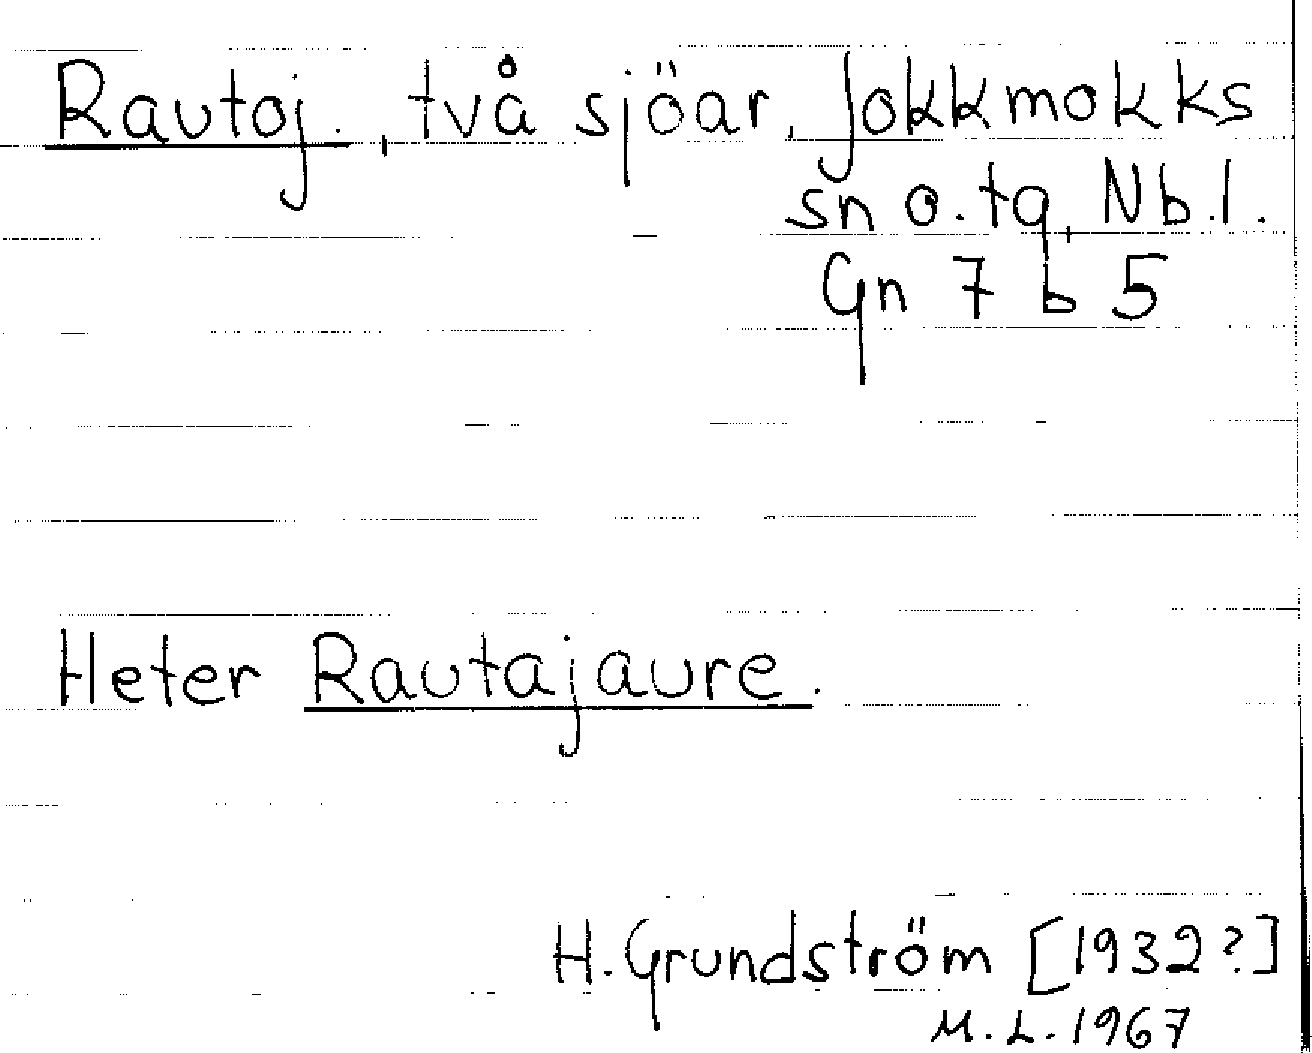 Rautoj., två sjöar, Jokkmokks
sn o. tg, Nb.l.
Gn 7 b 5
Heter Rautajaure.
H. Grundström [1932?]
M.L. 1967